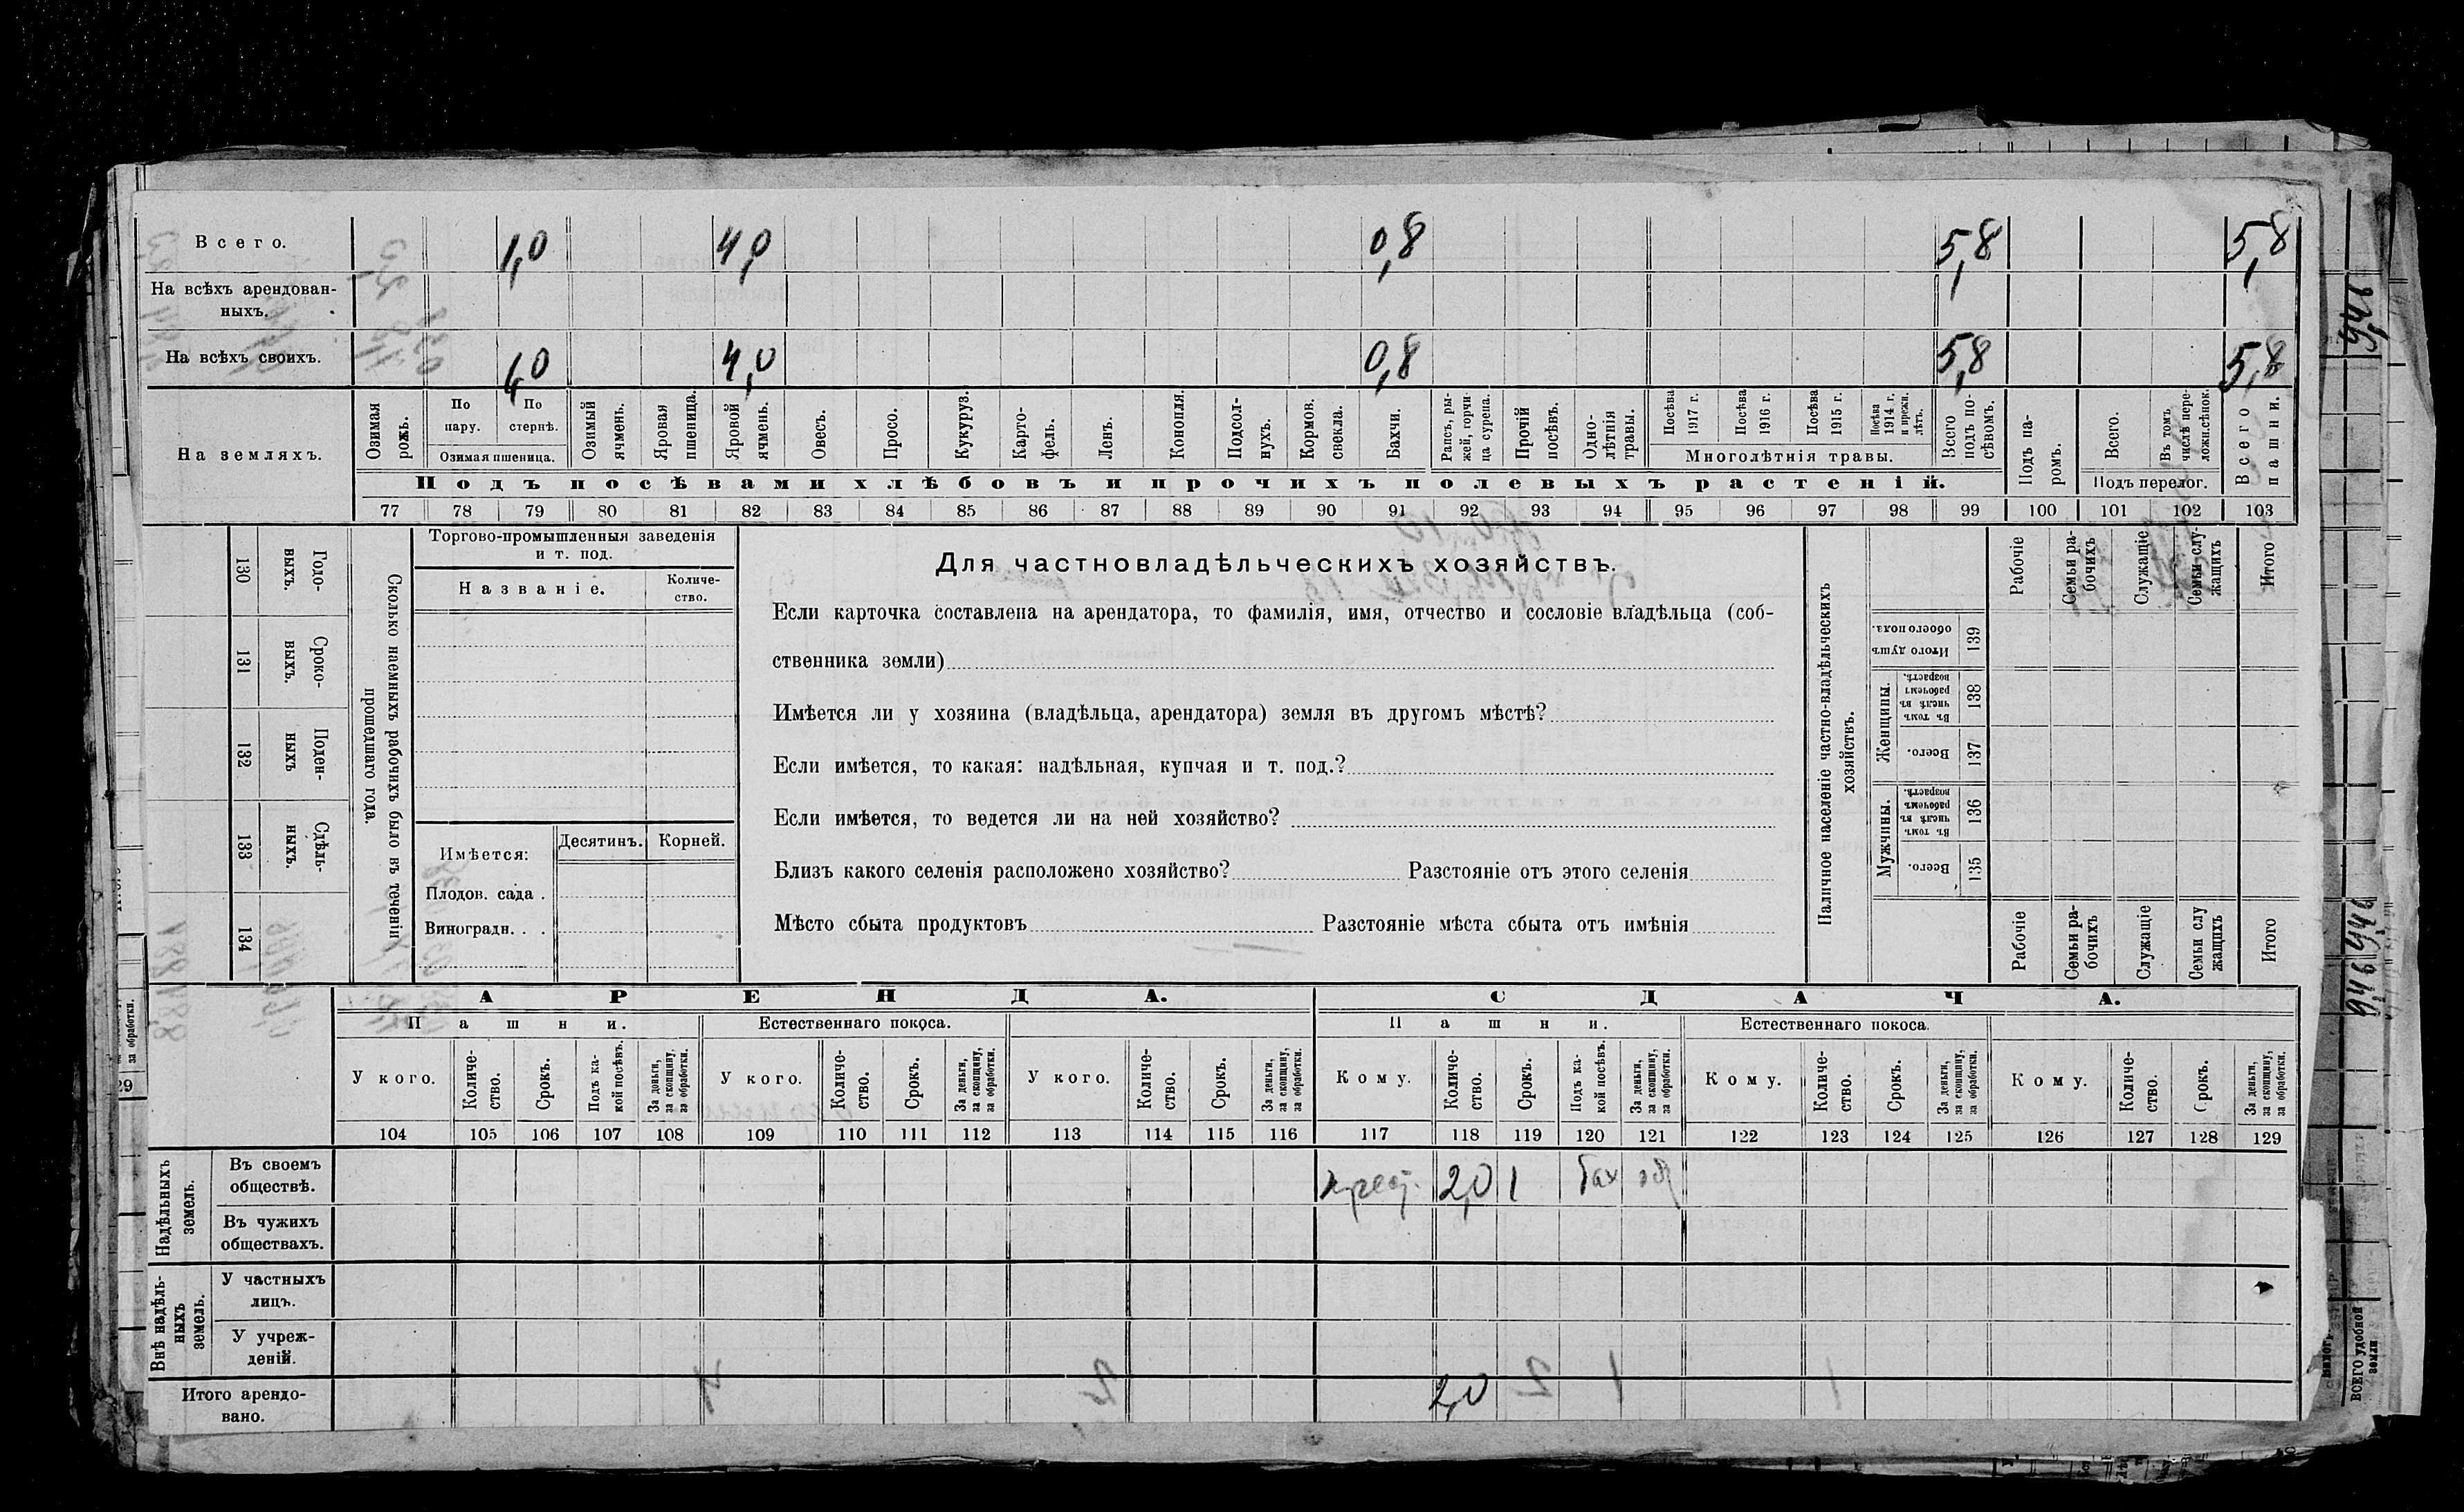 Всего. 1,0 4,0 0,8 5,8 5,8
На всѣхъ арендован-
ныхъ.
На всѣхъ своихъ. 1,0 4,0 0,8 5,8 5,8
На земляхъ.
Озимая рожь.
По пару.
По стернѣ.
Озимая пшеница.
Озимый ячмень.
Яровая пшеница.
Яровой ячмень.
Овесъ.
Просо.
Кукуруз.
Карто-фель.
Ленъ.
Конопля.
Подсол-нухъ.
Кормов. свекла.
Бахчи.
Рапсъ, ры-жей, горчи-ца сурепа.
Прочій посѣвъ.
Одно-лѣтнія травы.
Посѣва 1917 г.
Посѣва 1916 г.
Посѣва 1915 г.
Посѣва 1914 г. и прежн. лѣтъ.
Многолѣтнія травы.
Всего подъ по-сѣвомъ.
Подъ па-ромъ.
Всего.
Въ томъ числѣ впере-ложн.сѣнок.
Подъ перелог.
Всего пашни.
Подъ посѣвами хлѣбовъ и прочихъ полевыхъ растеній.
77 78 79 80 81 82 83 84 85 86 87 88 89 90 91 92 93 94 95 96 97 98 99 100 101 102 103
130 Годо-выхъ.
131 Сроко-выхъ.
132 Поден-ныхъ
133 Сдѣль-ныхъ.
134
Сколько наемныхъ рабочихъ было въ теченіи
прошедшаго года.
Торгово-промышленныя заведенія
и т. под.
Названіе. Количе-ство.
Имѣется: Десятинъ. Корней.
Плодов. сада .
Виноградн. . .
Для частновладѣльческихъ хозяйствъ.
Если карточка составлена на арендатора, то фамилія, имя, отчество и сословіе владѣльца (соб-
ственника земли)
Имѣется ли у хозяина (владѣльца, арендатора) земля въ другомъ мѣстѣ?
Если имѣется, то какая: надѣльная, купчая и т. под.?
Если имѣется, то ведется ли на ней хозяйство?
Близъ какого селенія расположено хозяйство? Разстояніе отъ этого селенія
Мѣсто сбыта продуктовъ Разстояніе мѣста сбыта отъ имѣнія
Наличное населеніе частно-владѣльческихъ
хозяйствъ.
Рабочіе
Семьи ра-бочихъ
Служащіе
Семьи слу-жащихъ
Итого
Итого душъ обоего пола. 139
Женщины.
Въ томъ числѣ въ рабочемъ возрастѣ. 138
Всего. 137
Мужчины.
Въ томъ числѣ въ рабочемъ возрастѣ. 136
Всего. 135
Рабочіе
Семьи ра-бочихъ
Служащіе
Семьи слу жащихъ
Итого
АРЕНДА. СДАЧА.
Пашни. Естественнаго покоса. Пашни. Естественнаго покоса.
У кого. Количе-ство. Срокъ. Подъ ка-кой посѣвъ. За деньги, за скопщину, за обработки. У кого. Количе-ство. Срокъ. За деньги, за скопщину, за обработки. У кого. Количе-ство. Срокъ. За деньги, за скопщину, за обработки. Кому. Количе-ство. Срокъ. Подъ ка-кой посѣвъ. За деньги, за скопщину, за обработки. Кому. Количе-ство. Срокъ. За деньги, за скопщину, за обработки. Кому. Количе-ство. Срокъ. За деньги, за скопщину, за обработки.
104 105 106 107 108 109 110 111 112 113 114 115 116 117 118 119 120 121 122 123 124 125 126 127 128 129
Надѣльныхъ земель.
Въ своемъ
обществѣ. 2,0 1 бах
Въ чужихъ
обществахъ.
Внѣ надѣль-ныхъ земель.
У частныхъ
лицъ.
У учреж-
деній.
Итого арендо-
вано. 2,0
за обработки.
29
ВСЕГО удобной земли